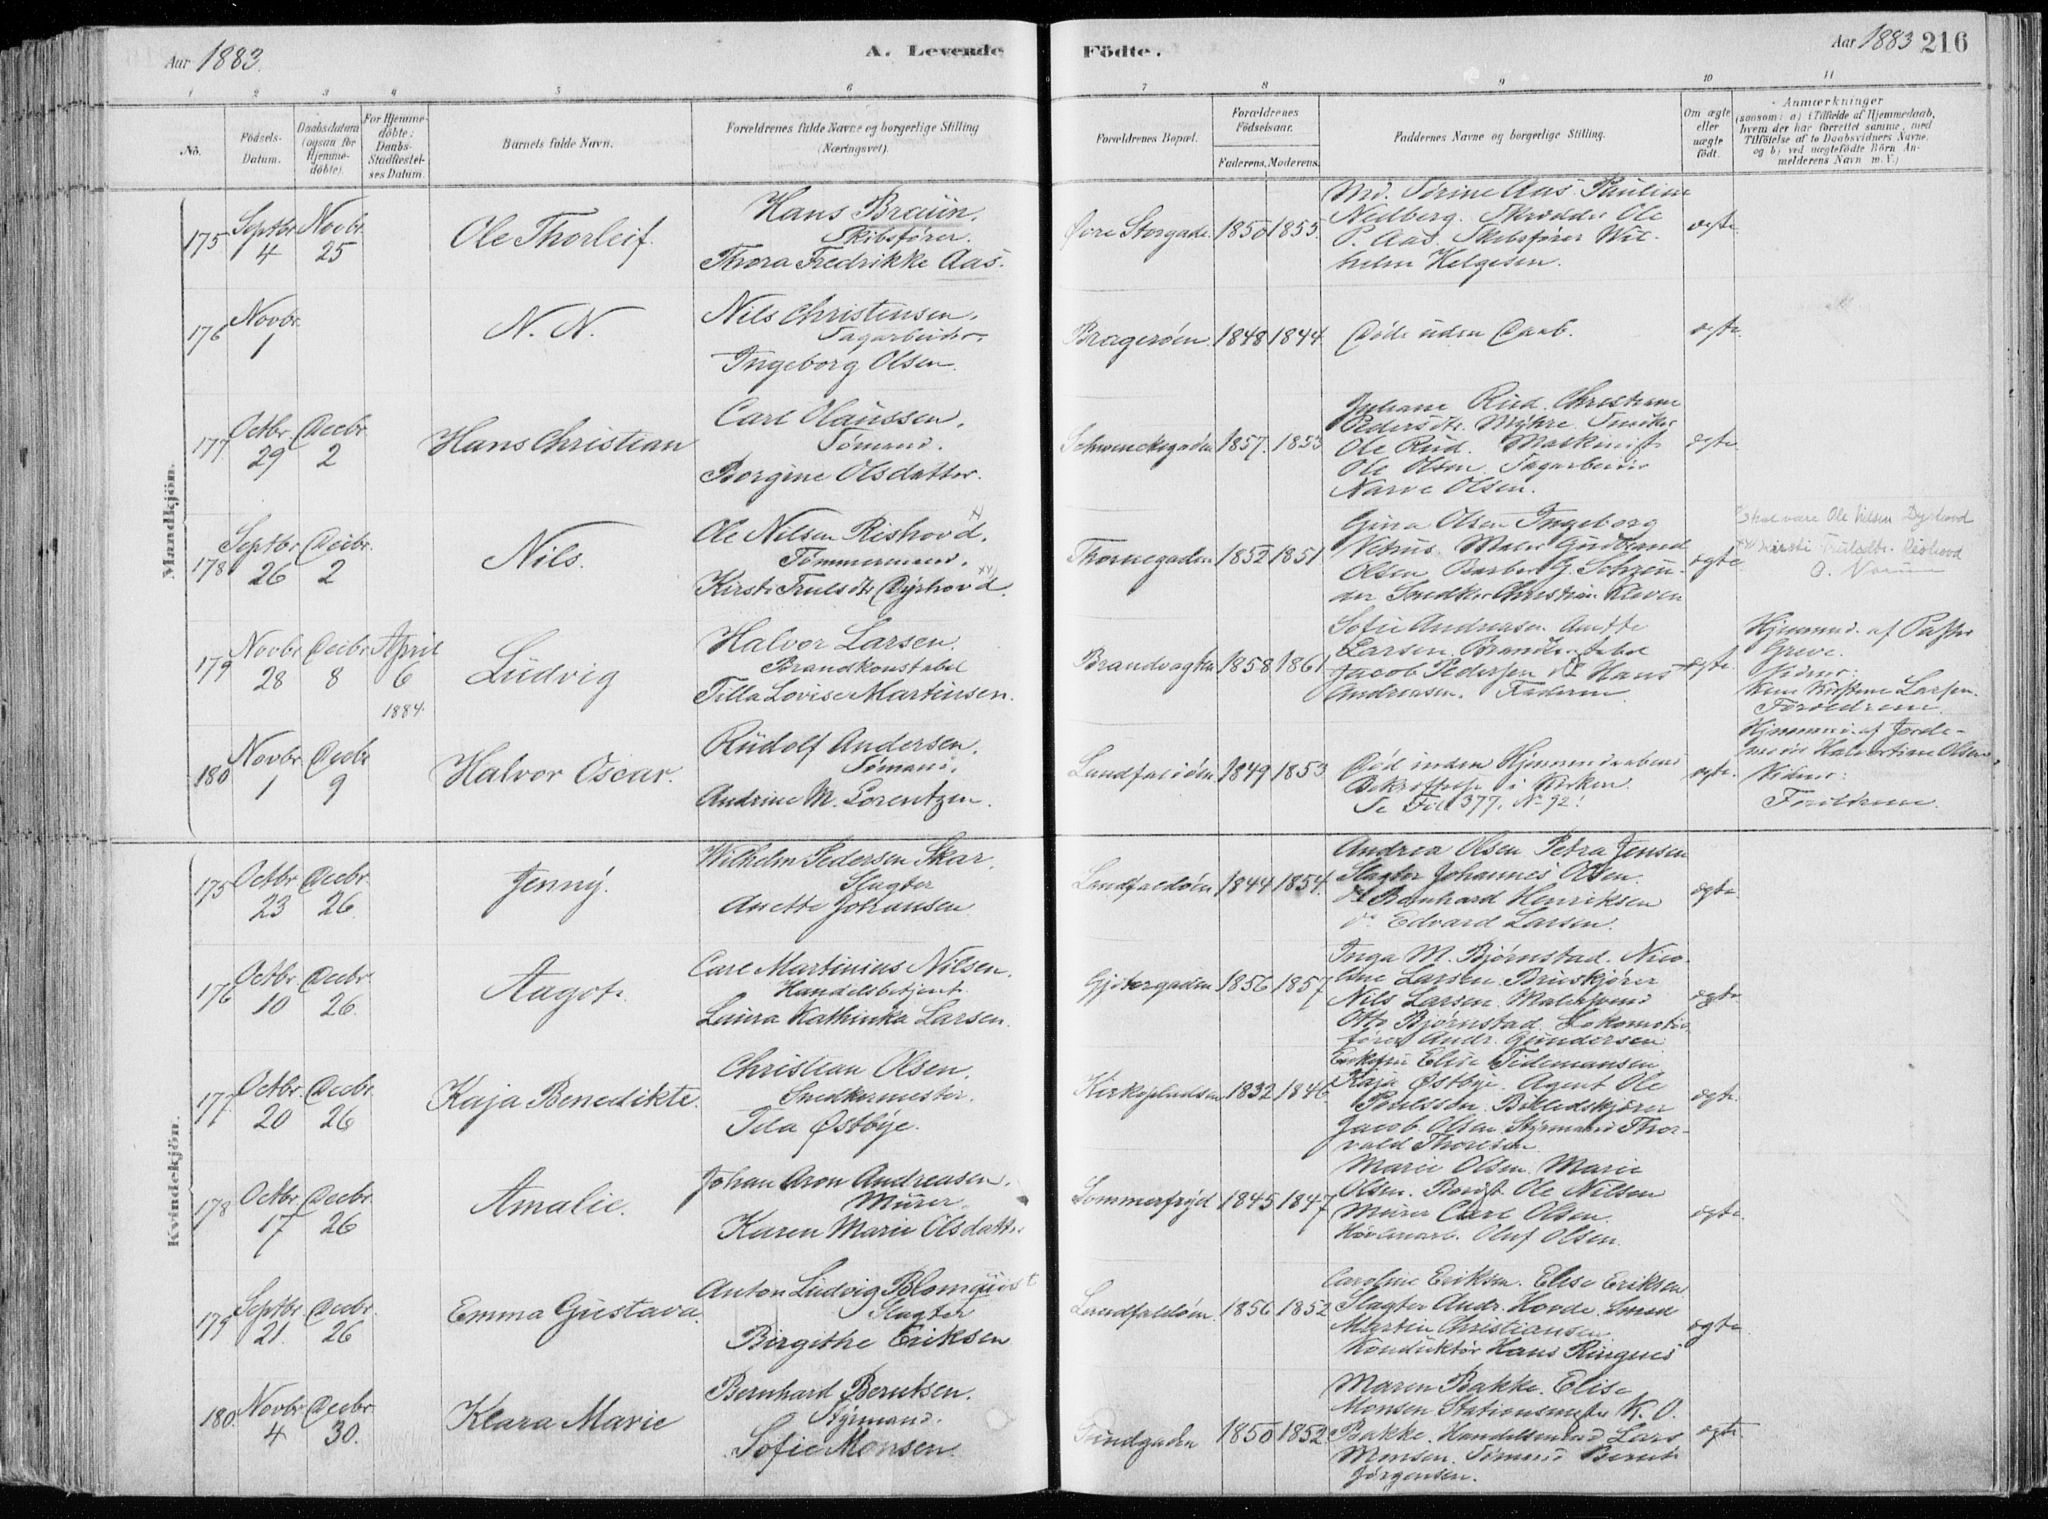 Aar 1883.
A. Levende
Födte.
Aar 1883
216
1 2 3 4 5 6 7 8 9 10 11
No.
Födsels-Datum.
Daabsdatum (ogsaa for Hjemmedöbte).
For Hjemmedöbte: Daabs-Stadfæstelses Datum.
Barnets fulde Navn.
Forældrenes fulde Navne og borgerlige Stilling
(Næringsvei).
Forældrenes Bopæl.
Forældrenes Födselsaar.
Faderens. Moderens.
Faddernes Navne og borgerlige Stilling.
Om ægte eller uægte födt.
Anmærkninger
(saasom: a) i Tilfælde af Hjemmedaab,
hvem der har forrettet samme, med
Tilföielse af to Daabsvidners Navne,
og b) ved uægtefödte Börn Anmelderens Navn m. V.)
Mandkjön.
175
Septbr. 4
Novbr. 25
Ole Thorleif.
Hans Braün.
Skibsfører.
Thora Fredrikke Aas.
Øvre Storgade.
1850
1855.
Md. Serine Aas. Pauline
Nedberg. Skrædder Ole
P. Aas. Skibsfører Wil-
helm Helgesen.
ægte
176
Novbr. 1
N. N.
Nils Christensen.
Sagarbeider.
Ingeborg Olsen.
Bragerøen.
1848
1844.
Døde uden Daab.
ægte
177
Octbr. 29
Decbr. 2
Hans Christian
Carl Olaussen.
Sømand.
Borgine Olsdatter.
1857.
1853
Juliane Rud. Christiane
Pedersdtr. Myhre. Snedker
Ole Rud. Maskinist
Ole Olsen. Sagarbeider
Narve Olsen.
ægte.
178
Septbr. 26
Decbr. 2
Nils.
Ole Nilsen Rishovd.
Tømmermand.
Kirsti Trulsdtr Dyrhovd.
Thornegaden
1852
1851
Gina Olsen Ingeborg
Maler Gudbrand
Olsen Barber G.
Snedker Christian Kleven
ægte
Skal være Ole Nilsen Dyrhovd
Kirsti Trulsdtr. Rishovd
179
Novbr. 28
Decbr. 8
April 6
1884.
Ludvig
Halvor Larsen.
Brandkonstabel
Tilla Lovise Martinsen.
Brandvagten
1858
1861
Sofie Andreasen Anette
Larsen. Brandkonstabel
Jacob Pedersen Hans
Andreasen. Faderen
ægte.
Hjemmed. af Pastor
Greve.
Vidner:
Larsen.
Forældrene.
180
Novbr. 1
Decbr. 9
Halvor Oscar.
Rudolf Andersen.
Sømand.
Andrine M. Lorentzen.
Landfaldøen
1849
1853
Død inden Hjemmedaabens
Bekræftelse i Kirken.
Se Fol 377. No 92!
ægte.
Hjemmed. af Jorde-
moder Halvardine Olsen.
Vidner:
Forældrene.
Kvindekjön.
175
Octbr. 23
Decbr. 26
Jenny.
Wilhelm Pedersen Skar.
Slagter
Anette Johansen
Landfaldøen
1844
1854.
Andrea Olsen Petra Jensen
Slagter Johannes Olsen.
do Bernhard Henriksen
do Edvard Larsen.
ægte.
176
Octbr. 10
Decbr. 26.
Aagot.
Carl Martinius Nilsen.
Handelsbetjent.
Laura Kathinka Larsen.
Gjetergaden
1856
1857
Inga M. Bjørnstad. Nico-
line Larsen. Bruskjører
Nils Larsen. Malersvend
Otto Bjørnstad. Lokomotiv
fører Andr. Gundersen
ægte
177
Octbr 20
Decbr 26
Kaja Benedikte.
Christian Olsen.
Snedkermester.
Ida Østbye.
Kirkepladsen
1832
1846.
Enkefru Elise Tidemansen
Kaja Østbye. Agent Ole
Poulsson.
Jacob Olsen. Styrmand Thor-
vald Thoresen
ægte.
178
Octbr. 17
Decbr. 26
Amalie.
Johan Aron Andreasen.
Murer.
Karen Marie Olsdatter
Sommerfryd
1845
1847
Marie Olsen. Marie
Olsen. Ole Nilsen
Murer Carl Olsen.
Oluf Olsen.
ægte.
179
Septbr. 21.
Decbr. 26
Emma Gustava.
Anton Ludvig Blomquist
Slagter
Birgithe Eriksen
Landfaldøen.
1856
1852
Caroline Eriksen. Elise Eriksen
Slagter Andr. Hovde. Smed
Martin Christiansen.
Konduktør Hans Ringnes
ægte
180.
Novbr 4
Decbr. 30.
Klara Marie
Bernhard Berntsen.
Styrmand.
Sofie Monsen.
Sundgaden
1850
1852.
Maren Bakke. Elise
Monsen Stationsmester K. O.
Bakke. Handelsmand Lars
Monsen. Sømand Bernt
Jørgensen.
ægte